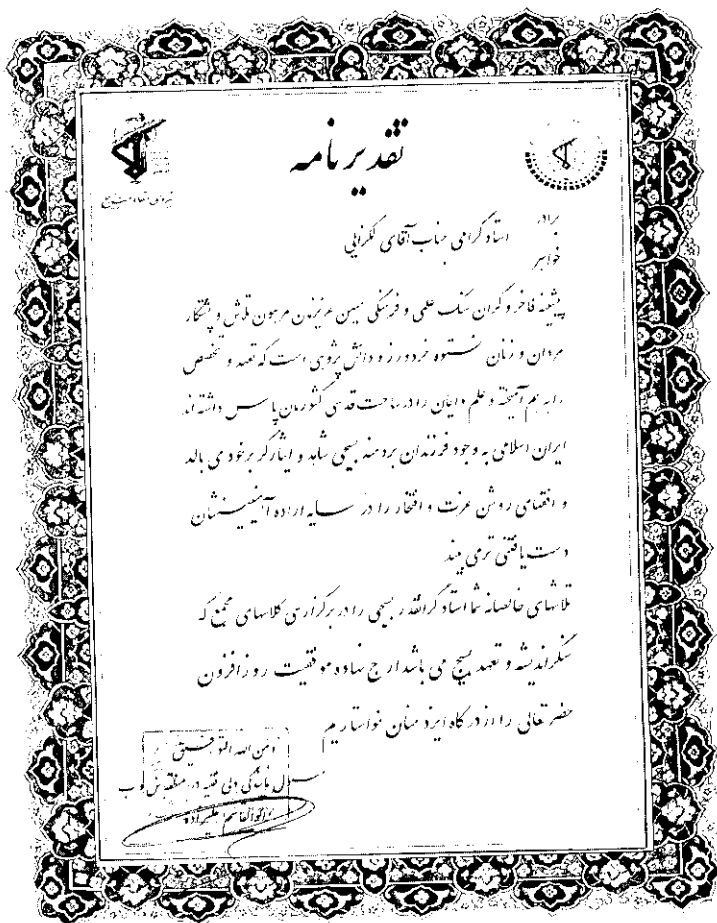 تقدیرنامه
نیروی مقاومت بسیج
برادر
خواهر
استاد گرامی جناب آقای
پیشینه فاخر و گران سنگ علمی و فرهنگی میهن عزیزمان مرهون تلاش و پشتکار
مردان و زنان نستوه خردورز و دانش پژوهی است که تعهد و تخصص
را به هم آمیخته و علم و ایمان را در ساحت قدسی کشورمان پاس داشته اند
ایران اسلامی به وجود فرزندان برومند بسیجی شاهد و ایثارگر بر خود می بالد
و افقهای روشن عزت و افتخار را در سایه اراده آهنینشان
دست یافتنی تر می بیند
تلاشهای خالصانه شما استاد گرانقدر بسیجی را در برگزاری کلاسهای مجتمع که
سنگر اندیشه و تعهد بسیج می باشد ارج نهاده موفقیت روزافزون
حضرتعالی را از درگاه ایزد منان خواستاریم
و من الله التوفیق
مسئول نمایندگی ولی فقیه در منطقه
ابوالقاسم علیزاده